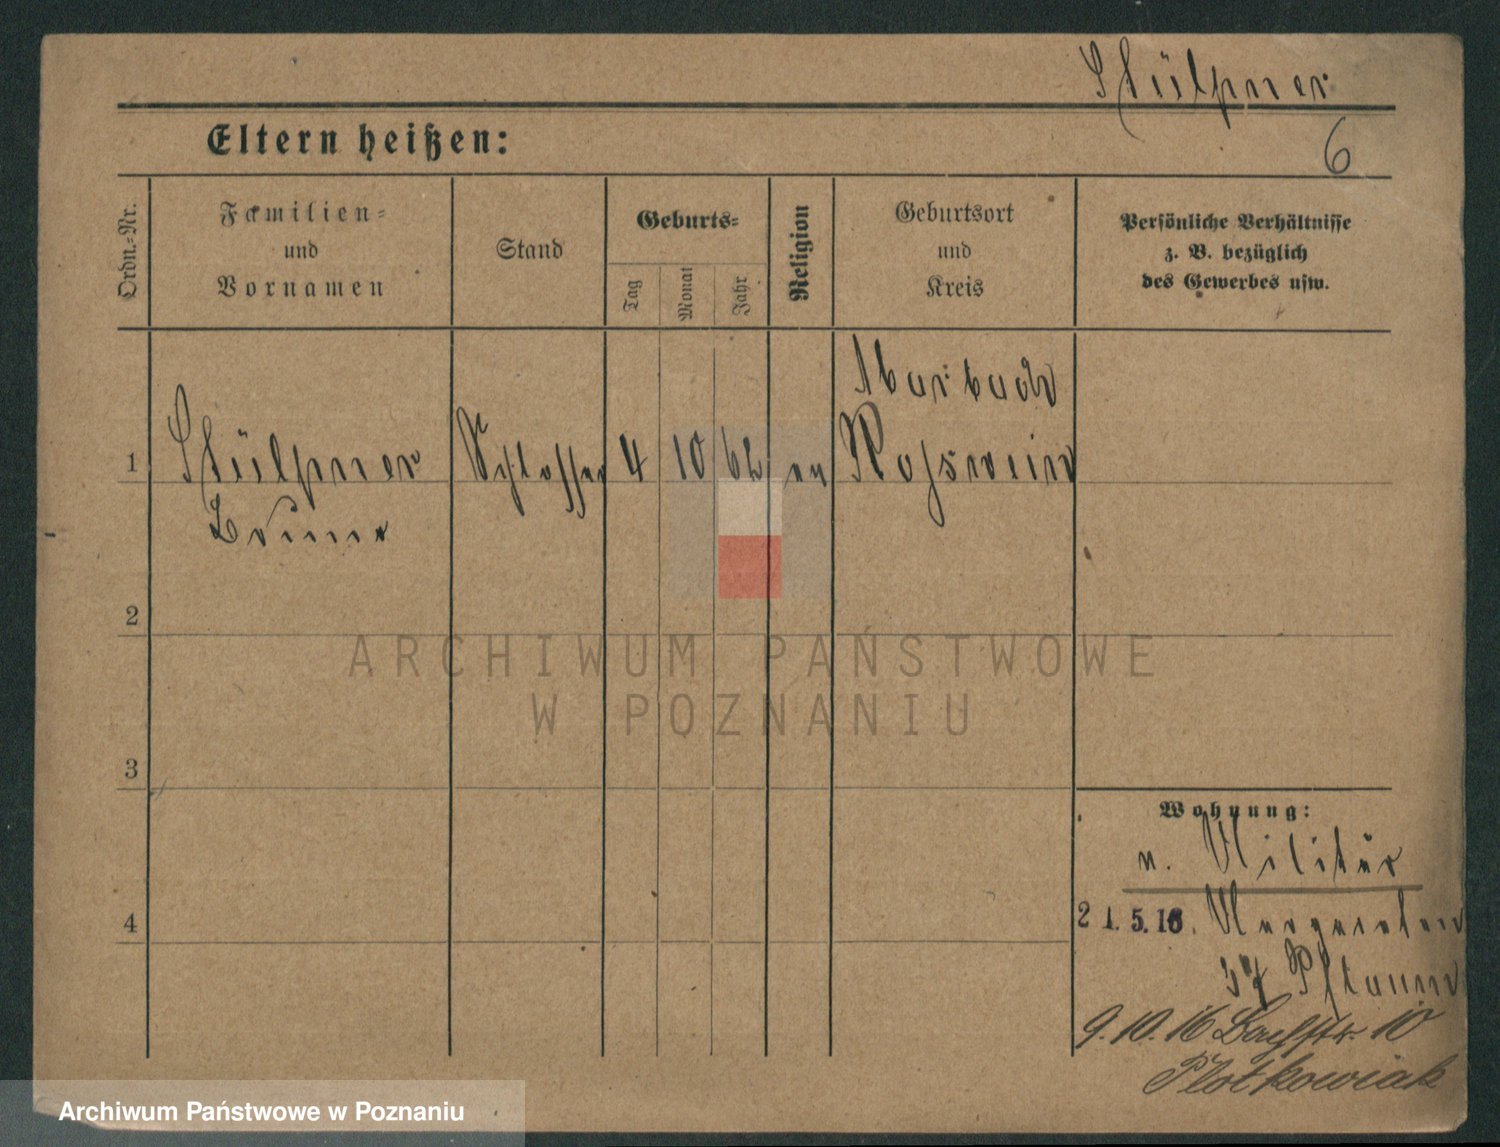 Stülpner
6
Eltern heißen:
Ordn.-Nr.
Familien-
und
Vornamen
Stand
Geburts-
Tag
Monat
Jahr
Religion
Geburtsort
und
Kreis
Persönliche Verhältnisse
z. B. bezüglich
des Gewerbes usw.
Marbach
1 Stülpner Schlosser 4 10 62 ev Rosswein
Bruno
2
ARCHIWUM PAŃSTWOWE
W POZNANIU
3
Wohnung:
v. Militär
4
21.5.16. Margareten
37
9.10.16 10
Plotkowiak
Archiwum Państwowe w Poznaniu